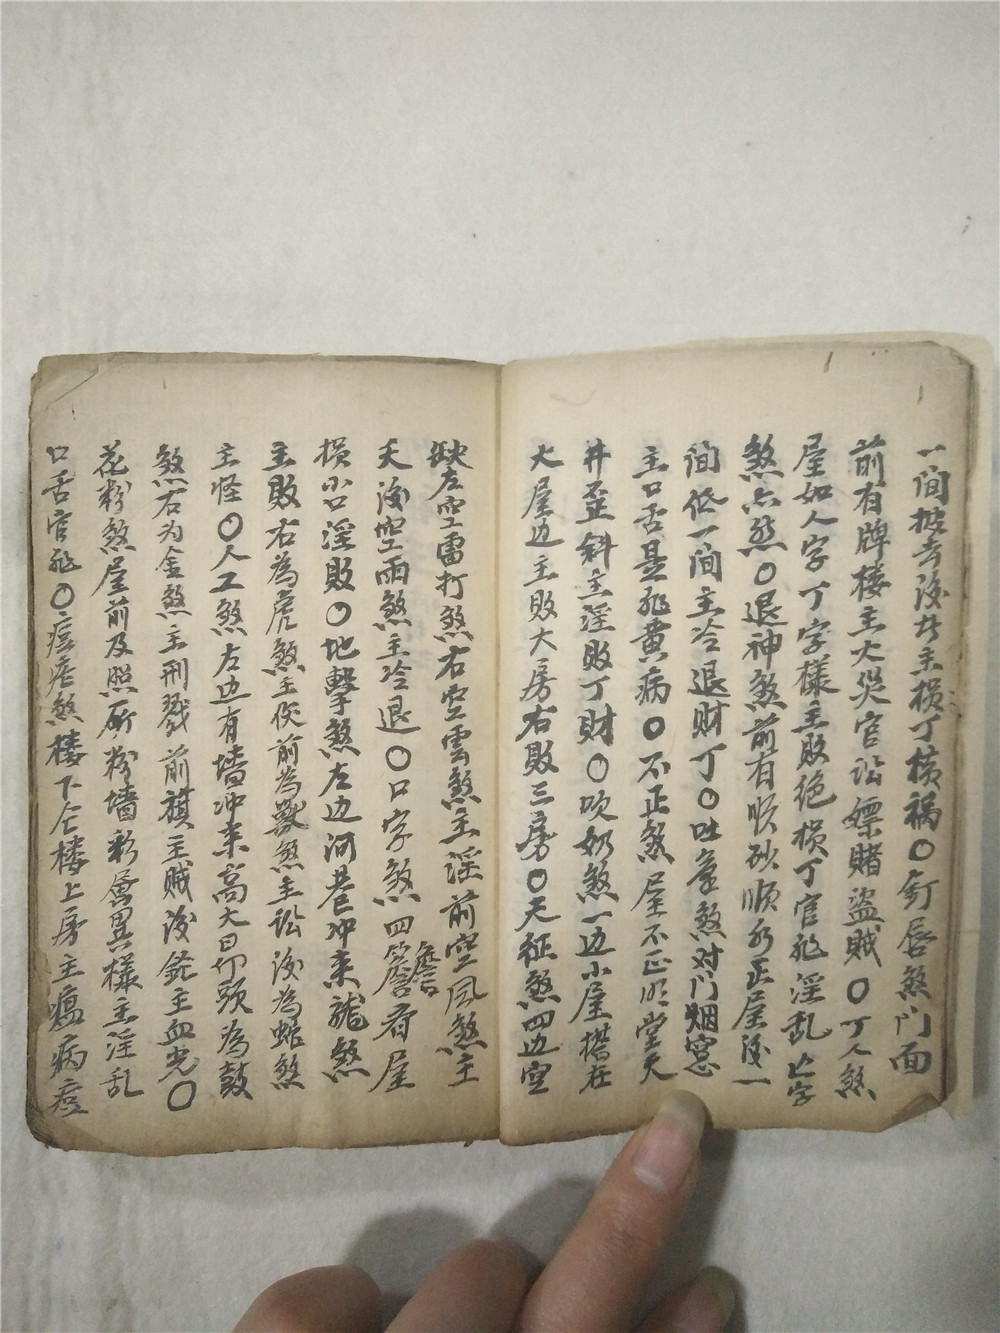 一间披孝後廿主损丁横祸〇釘唇煞门面
前有牌楼主火災官讼嫖賭盜贼〇丁人煞
屋如人字丁字樣主敗絶损丁官非淫乱亡字
煞亦然〇退神煞前有順砂順水正屋後一
间低一间主冷退财丁〇吐煞对门烟窓
主口舌是非黄病〇不正煞屋不正明堂天
井歪斜主淫敗丁財〇吹奶煞一边小屋搭在
大屋边主敗大房右敗三房〇天征煞四边空
缺左空雷打煞右空雲煞主淫前空风煞主
夭後空雨煞主冷退〇口字煞四簷看屋
簷
损小口淫敗〇地擊煞左边河巷冲来龍煞
主敗右為虎煞主伤前為獸煞主訟後為蛇煞
主怪〇人工煞左边有墙冲来高大曰印頭為鼓
煞右为金煞主刑戮前旗主贼後銃主血光〇
花粉煞屋前及照所粉墙彩畫異樣主淫乱
口舌官非〇煞楼下仓楼上房主瘟病